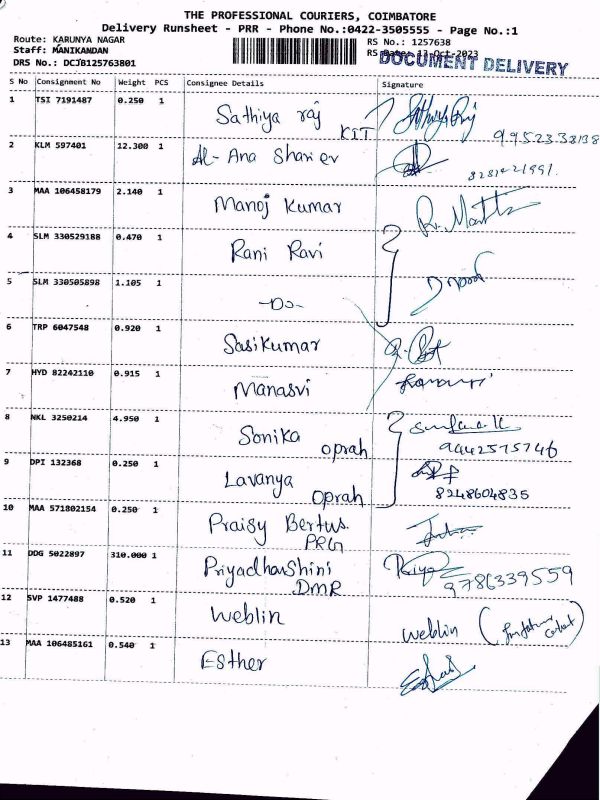 THE PROFESSIONAL COURIERS, COIMBATORE
Delivery Runsheet - PRR - Phone No.:0422-3505555 - Page No.:1
Route: KARUNYA NAGAR
RS No.: 1257638
Staff: MANIKANDAN
RS Date: 13-Oct-2023
DOCUMENT DELIVERY
DRS No.: DCJB125763801
S No Consignment No Weight PCS Consignee Details Signature
1 TSI 7191487 0.250 1 Sathiya raj
KIT
9952338138
2 KLM 597401 12.300 1 Al-Ana
3 MAA 106458179 2.140 1 Manoj Kumar
4 SLM 330529188 0.470 1 Rani Ravi
5 SLM 330505898 1.105 1 -Do-
6 TRP 6047548 0.920 1 Sasikumar
7 HYD 82242110 0.915 1 Manasvi
8 NKL 3250214 4.950 1 Sonika
oprah
9442575746
9 DPI 132368 0.250 1 Lavanya
oprah
8248604835
10 MAA 571802154 0.250 1 Praisy Bertus
PRG
11 DDG 5022897 310.000 1 Priyadharshini Priya
DMR
9786339559
12 SVP 1477488 0.520 1 Weblin Weblin
13 MAA 106485161 0.540 1 Esther